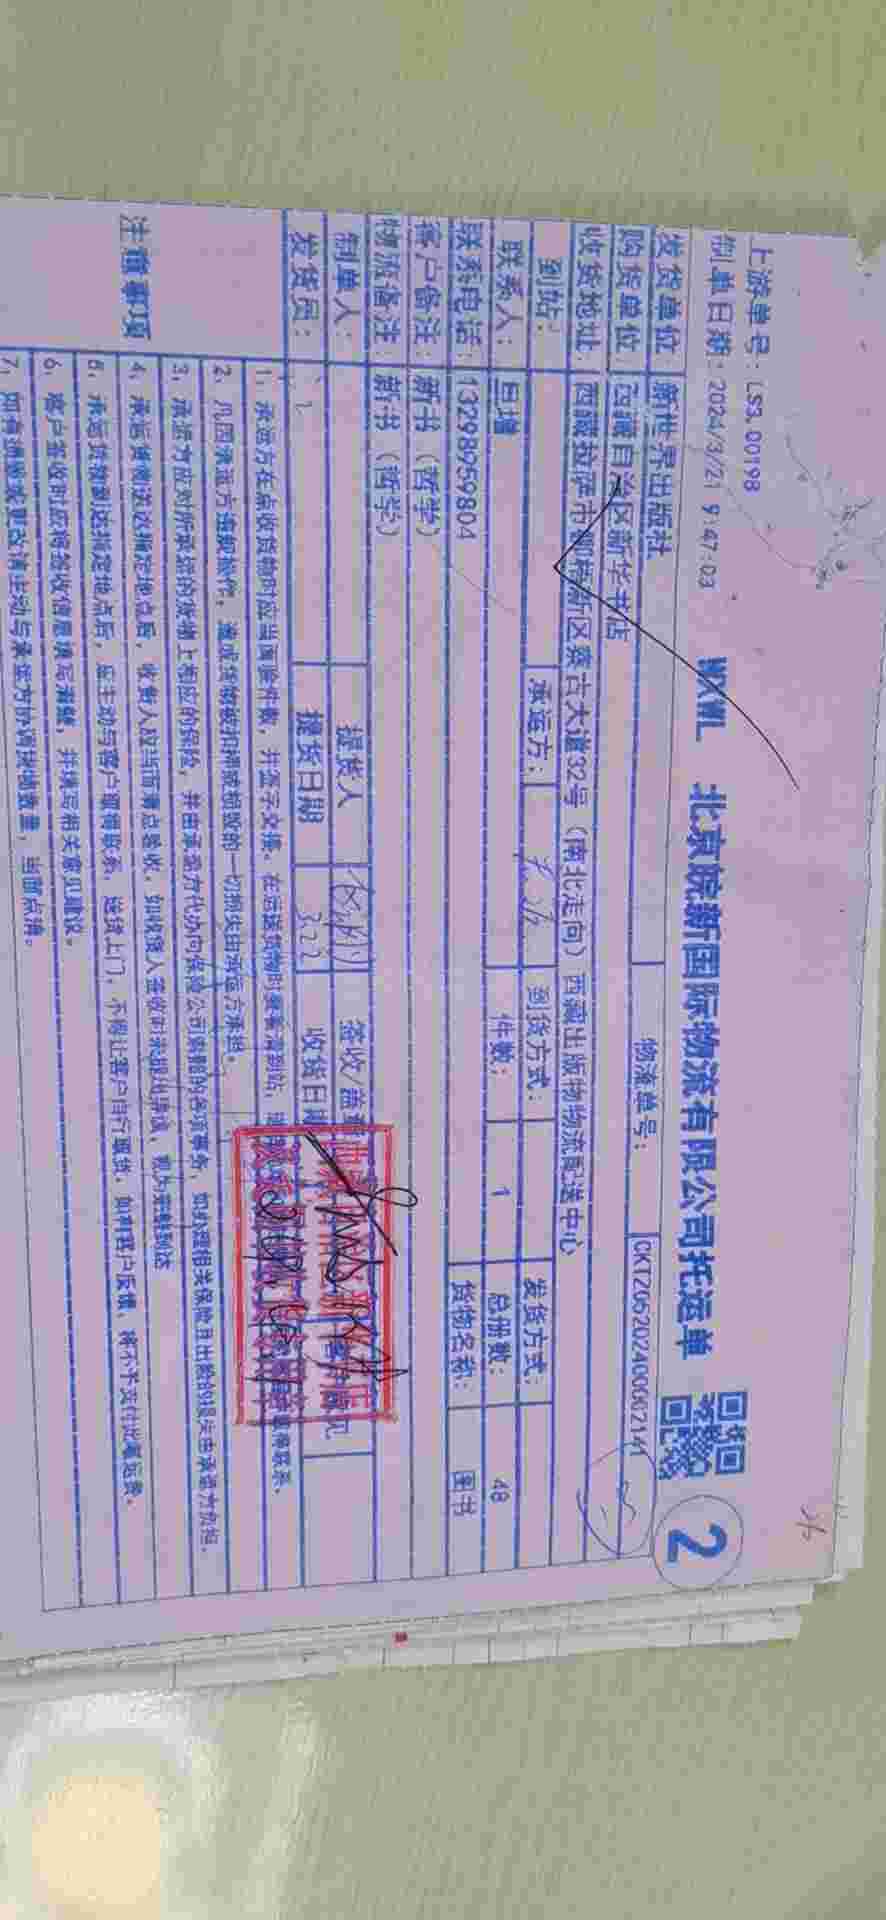 上游单号：LS3.00198
制单日期：2024/3/21 9:47:03
WXWL 北京皖新国际物流有限公司托运单
2
发货单位 新世界出版社 物流单号： CKT20520240000214
购货单位 西藏自治区新华书店
收货地址 西藏拉萨市柳梧新区桑吉大道32号（南北走向）西藏出版物物流配送中心
到站： 承运方： 到货方式： 发货方式：
联系人： 旦增 件数： 1 总册数： 48
联系电话：13298959804 货物名称： 图书
客户备注：新书（哲学）
物流备注：新书（哲学）
制单人： 提货人 签收/盖章
发货员： 提货日期 3.22 收货日期
注意事项
1、承运方在点收货物时应当面验件数，并签字交接。在运送货物时要看清到站，
2、凡因承运方违规操作，造成货物被扣押或损毁的一切损失由承运方承担。
3、承运方应对所承运的货物上相应的保险，并由承运方代办向保险公司索赔的各项事务，如办理相关保险且出险的损失由承运方负担。
4、承运货物送达指定地点后，收货人应当面清点签收，如收货人签收时未提出异议，视为完整到达
5、承运货物到达指定地点后，应主动与客户取得联系，送货上门，不得让客户自行取货，如有客户反馈，将不予支付此笔运费。
6、客户签收时应将签收信息填写清楚，并填写相关意见建议。
7、如有调换或更改请主动与承运方协调货物数量，当面点清。